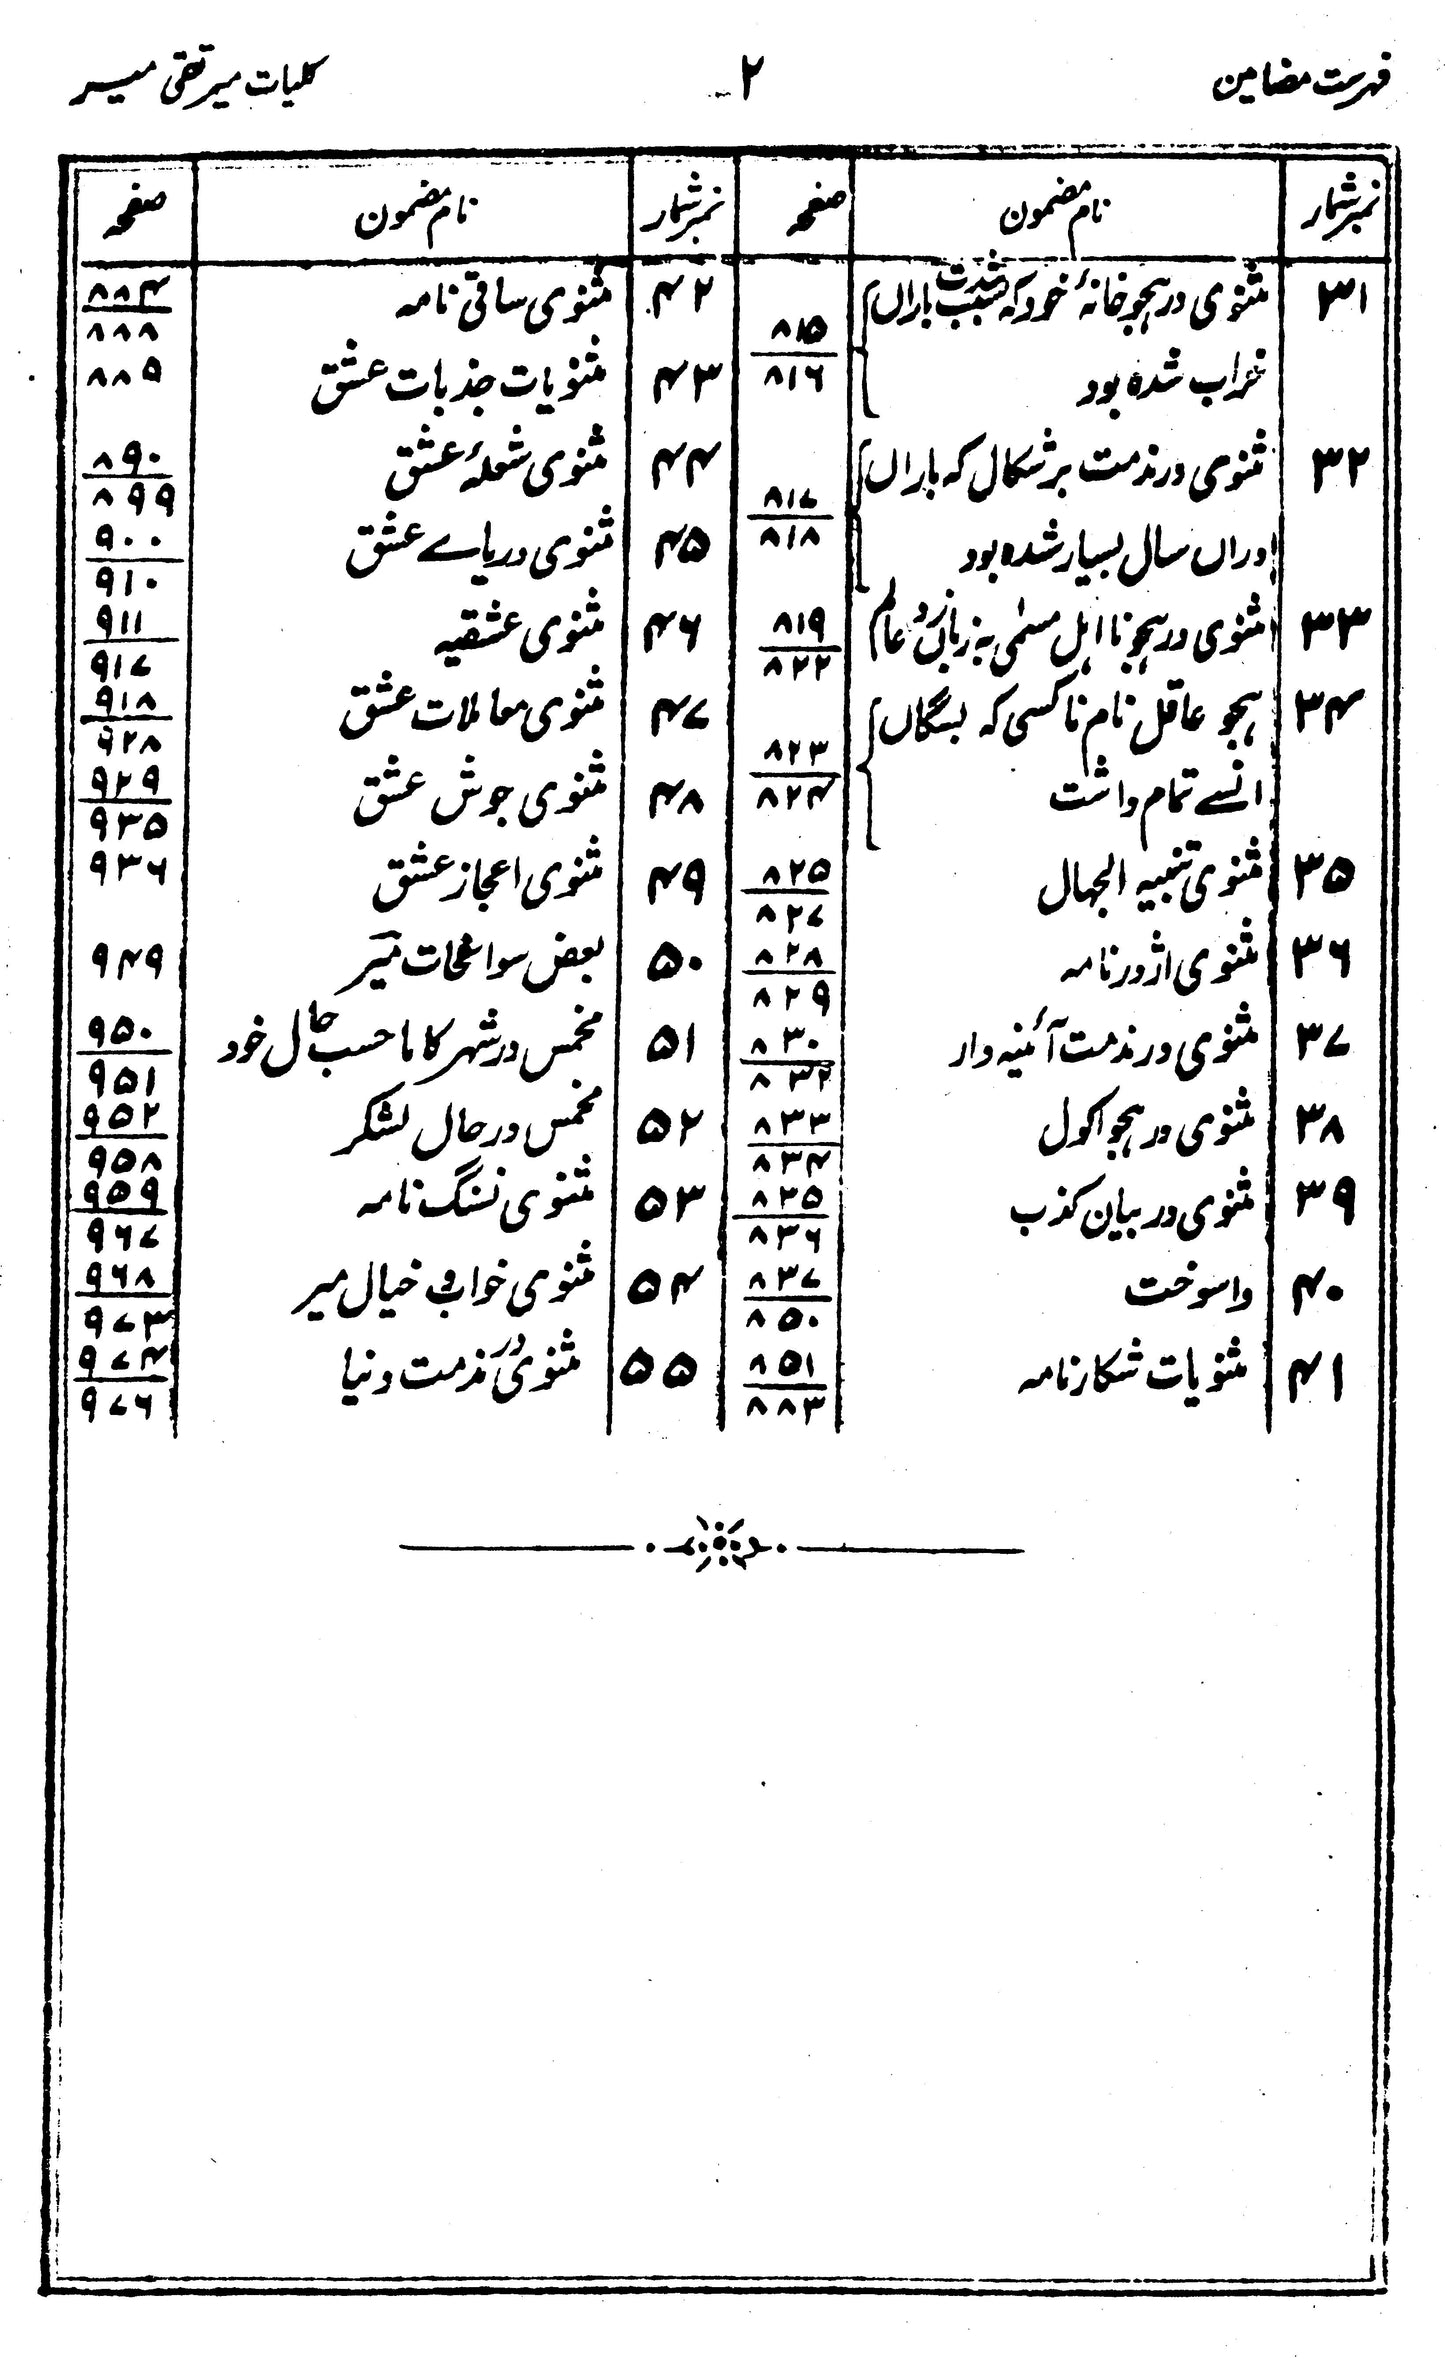 فہرست مضامین ۲ کلیات میر تقی میر
نمبر شمار نام مضمون صفحہ نمبر شمار نام مضمون صفحہ
۳۱ مثنوی در ہجو خانۂ خود کہ بسبب شدت باراں
خراب شدہ بود ۸۱۵ ۸۱۶
۳۲ مثنوی در مذمت برشکال کہ باراں
دراں سال بسیار شدہ بود ۸۱۷ ۸۱۸
۳۳ مثنوی در ہجو نا اہل مسمٰی بہ زبان زد عالم ۸۱۹ ۸۲۲
۳۴ ہجو عاقل نام ناکسی کہ بسگاں
انسے تمام داشت ۸۲۳ ۸۲۴
۳۵ مثنوی تنبیہ الجہال ۸۲۵ ۸۲۷
۳۶ مثنوی اژدرنامہ ۸۲۸ ۸۲۹
۳۷ مثنوی در مذمت آئینہ دار ۸۳۰ ۸۳۲
۳۸ مثنوی در ہجو اکول ۸۳۳ ۸۳۴
۳۹ مثنوی در بیان کذب ۸۳۵ ۸۳۶
۴۰ واسوخت ۸۳۷ ۸۵۰
۴۱ مثنویات شکارنامہ ۸۵۱ ۸۸۳
۴۲ مثنوی ساقی نامہ ۸۸۴ ۸۸۸
۴۳ مثنویات جذبات عشق ۸۸۹
۴۴ مثنوی شعلۂ عشق ۸۹۰ ۸۹۹
۴۵ مثنوی دریاے عشق ۹۰۰ ۹۱۰
۴۶ مثنوی عشقیہ ۹۱۱ ۹۱۷
۴۷ مثنوی معاملات عشق ۹۱۸ ۹۲۸
۴۸ مثنوی جوش عشق ۹۲۹ ۹۳۵
۴۹ مثنوی اعجاز عشق ۹۳۶
۵۰ بعض سوانحات میر ۹۴۹
۵۱ مخمس در شہر کاما حسب حال خود ۹۵۰ ۹۵۱
۵۲ مخمس در حال لشکر ۹۵۲ ۹۵۸
۵۳ مثنوی نسنگ نامہ ۹۵۹ ۹۶۷
۵۴ مثنوی خواب و خیال میر ۹۶۸ ۹۷۳
۵۵ مثنوی در مذمت دنیا ۹۷۴ ۹۷۶